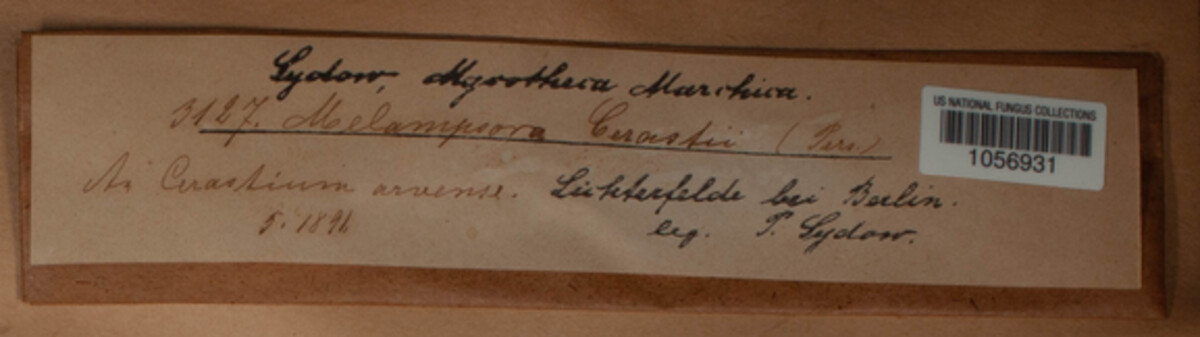 Sydow, Mycotheca Marchica.
3127. Melampsora Cerastii (Pers)
An Cerastium arvense. Lichterfelde bei Berlin.
5. 1891 leg. P. Sydow.
US NATIONAL FUNGUS COLLECTIONS
1056931